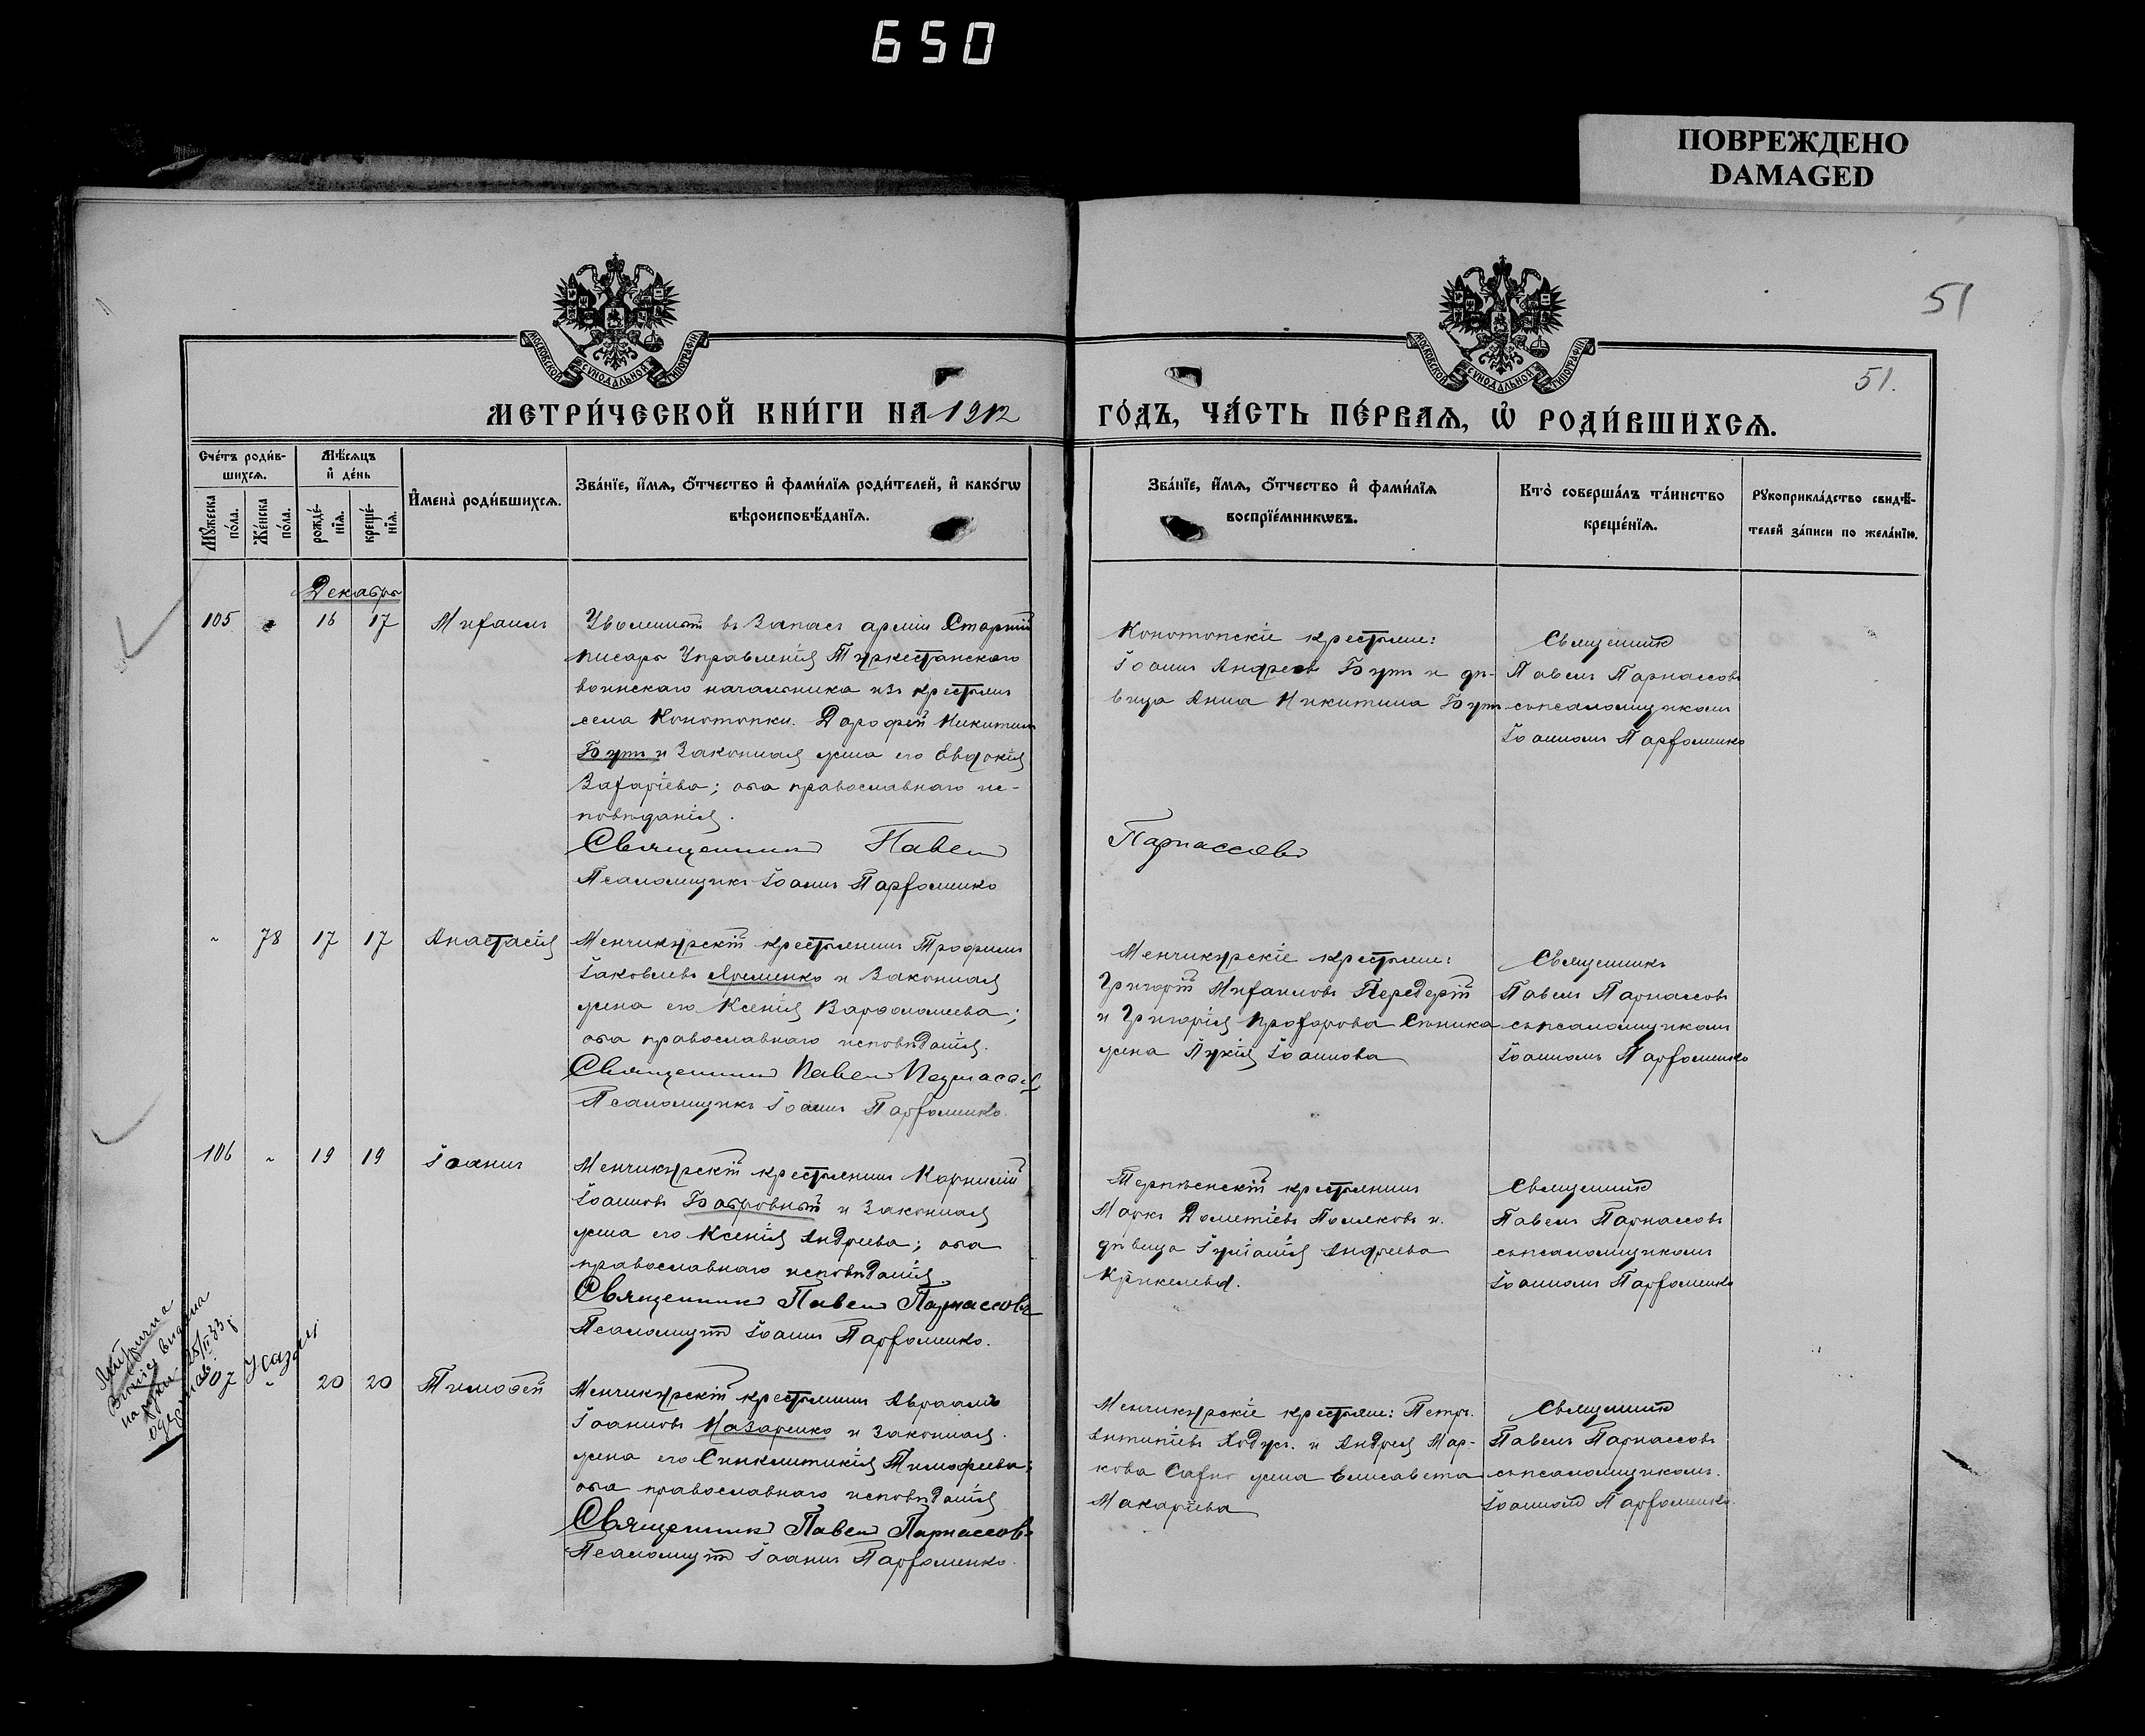 650
ПОВРЕЖДЕНО
DAMAGED
51
51.
МОСКОВСКОЙ СѴНОДАЛЬНОЙ ТИПОГРАФІИ
МОСКОВСКОЙ СѴНОДАЛЬНОЙ ТИПОГРАФІИ
МЕТРИ́ЧЕСКОЙ КНИ́ГИ НА 1912
ГО́ДЪ, ЧА́СТЬ ПЕ́РВАѦ, Ѡ҆ РОДИ́ВШИХСѦ.
Сче́тъ роди́в-
шихсѧ.
Мѣ́сѧцъ
и҆ де́нь
Мꙋ́жеска
по́ла.
Же́нска
по́ла.
рожде́-
нїѧ.
креще́-
нїѧ.
И҆мена̀ роди́вшихсѧ.
Зва́нїе, и҆́мѧ, ѻ҆́тчество и҆ фами́лїѧ роди́телей, и҆ како́гѡ
вѣроисповѣ́данїѧ.
Зва́нїе, и҆́мѧ, ѻ҆́тчество и҆ фами́лїѧ
воспрїе́мникѡвъ.
Кто̀ соверша́лъ та́инство
креще́нїѧ.
Рꙋкоприкла́дство свидѣ́-
телей за́писи по жела́нїю.
Декабрь
105 " 16 17 Михаилъ
Уволенный въ Запасъ арміи Старшій
писарь Управленія Туркестанскаго
воинскаго начальника изъ крестьянъ
села Конотопки. Дорофей Никитинъ
Бутъ и Законная жена его Евдокія
Захаріева; оба православнаго ис-
повѣданія.
Священникъ Павелъ
Парнассовъ
Псаломщикъ Іоаннъ Пархоменко
Конотопскіе крестьяне:
Іоаннъ Андреевъ Бутъ и дѣ-
вица Анна Никитина Бутъ
Священникъ
Павелъ Парнассовъ
съ псаломщикомъ
Іоанномъ Пархоменко
" 78 17 17 Анастасія
Менчикурскій крестьянинъ Трофимъ
Іаковлевъ Яременко и Законная
жена его Ксенія Варфоломеева;
оба православнаго исповѣданія.
Священникъ Павелъ Парнассовъ
Псаломщикъ Іоаннъ Пархоменко.
Менчикурскіе крестьяне:
Григорій Михаиловъ Передерій
и Григорія Прохорова Сѣника
жена Лукія Іоаннова
Священникъ
Павелъ Парнассовъ
съ псаломщикомъ
Іоанномъ Пархоменко
106 " 19 19 Іоаннъ
Менчикурскій крестьянинъ Корнилій
Іоанновъ Бобровный и Законная
жена его Ксенія Андреева; оба
православнаго исповѣданія.
Священникъ Павелъ Парнассовъ
Псаломщикъ Іоаннъ Пархоменко.
Терпѣенскій крестьянинъ
Маркъ Дометіевъ Поляковъ и
дѣвица Іуліанія Андреева
Священникъ
Павелъ Парнассовъ
съ псаломщикомъ
Іоанномъ Пархоменко
на руки 25/II 33
107 " 20 20 Тимофей
Менчикурскій крестьянинъ Авраамъ
Іоанновъ Назаренко и Законная
жена его Синклитикія Тимофеева;
оба православнаго исповѣданія
Священникъ Павелъ Парнассовъ
Псаломщикъ Іоаннъ Пархоменко.
Менчикурскіе крестьяне: Петръ
Антипіевъ Ходусъ и Андрея Мар-
кова Сахно жена Елисавета
Макаріева
Священникъ
Павелъ Парнассовъ
съ псаломщикомъ
Іоанномъ Пархоменко.